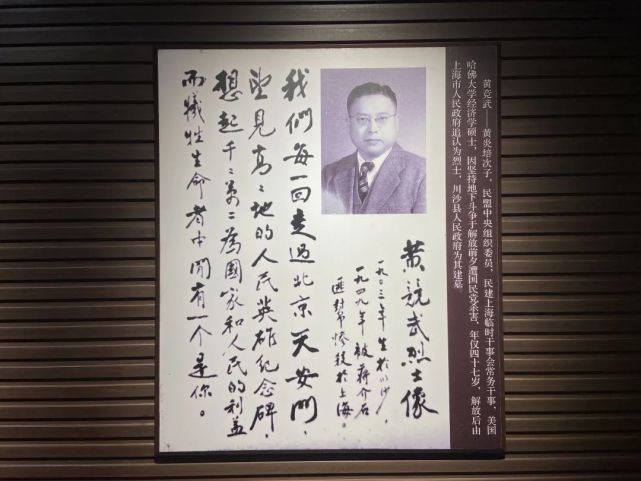 黄竞武——黄炎培次子，民盟中央组织委员，民建上海临时干事会常务干事，美国
哈佛大学经济学硕士，因坚持地下斗争于解放前夕遭国民党杀害，年仅四十七岁，解放后由
上海市人民政府追认为烈士，川沙县人民政府为其建墓
黄競武烈士像
一九〇三年生於川沙，
一九四九年被蔣介石
匪幫慘殺於上海。
我們每一回走過北京天安門，
望見高々地的人民英雄紀念碑，
想起千々萬々為國家和人民的利益
而犧牲生命者中間有一个是你。